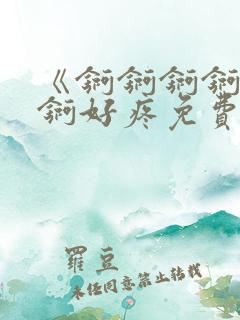 《锕锕锕锕
锕好疼免費
羅豆
未经同意禁止转载